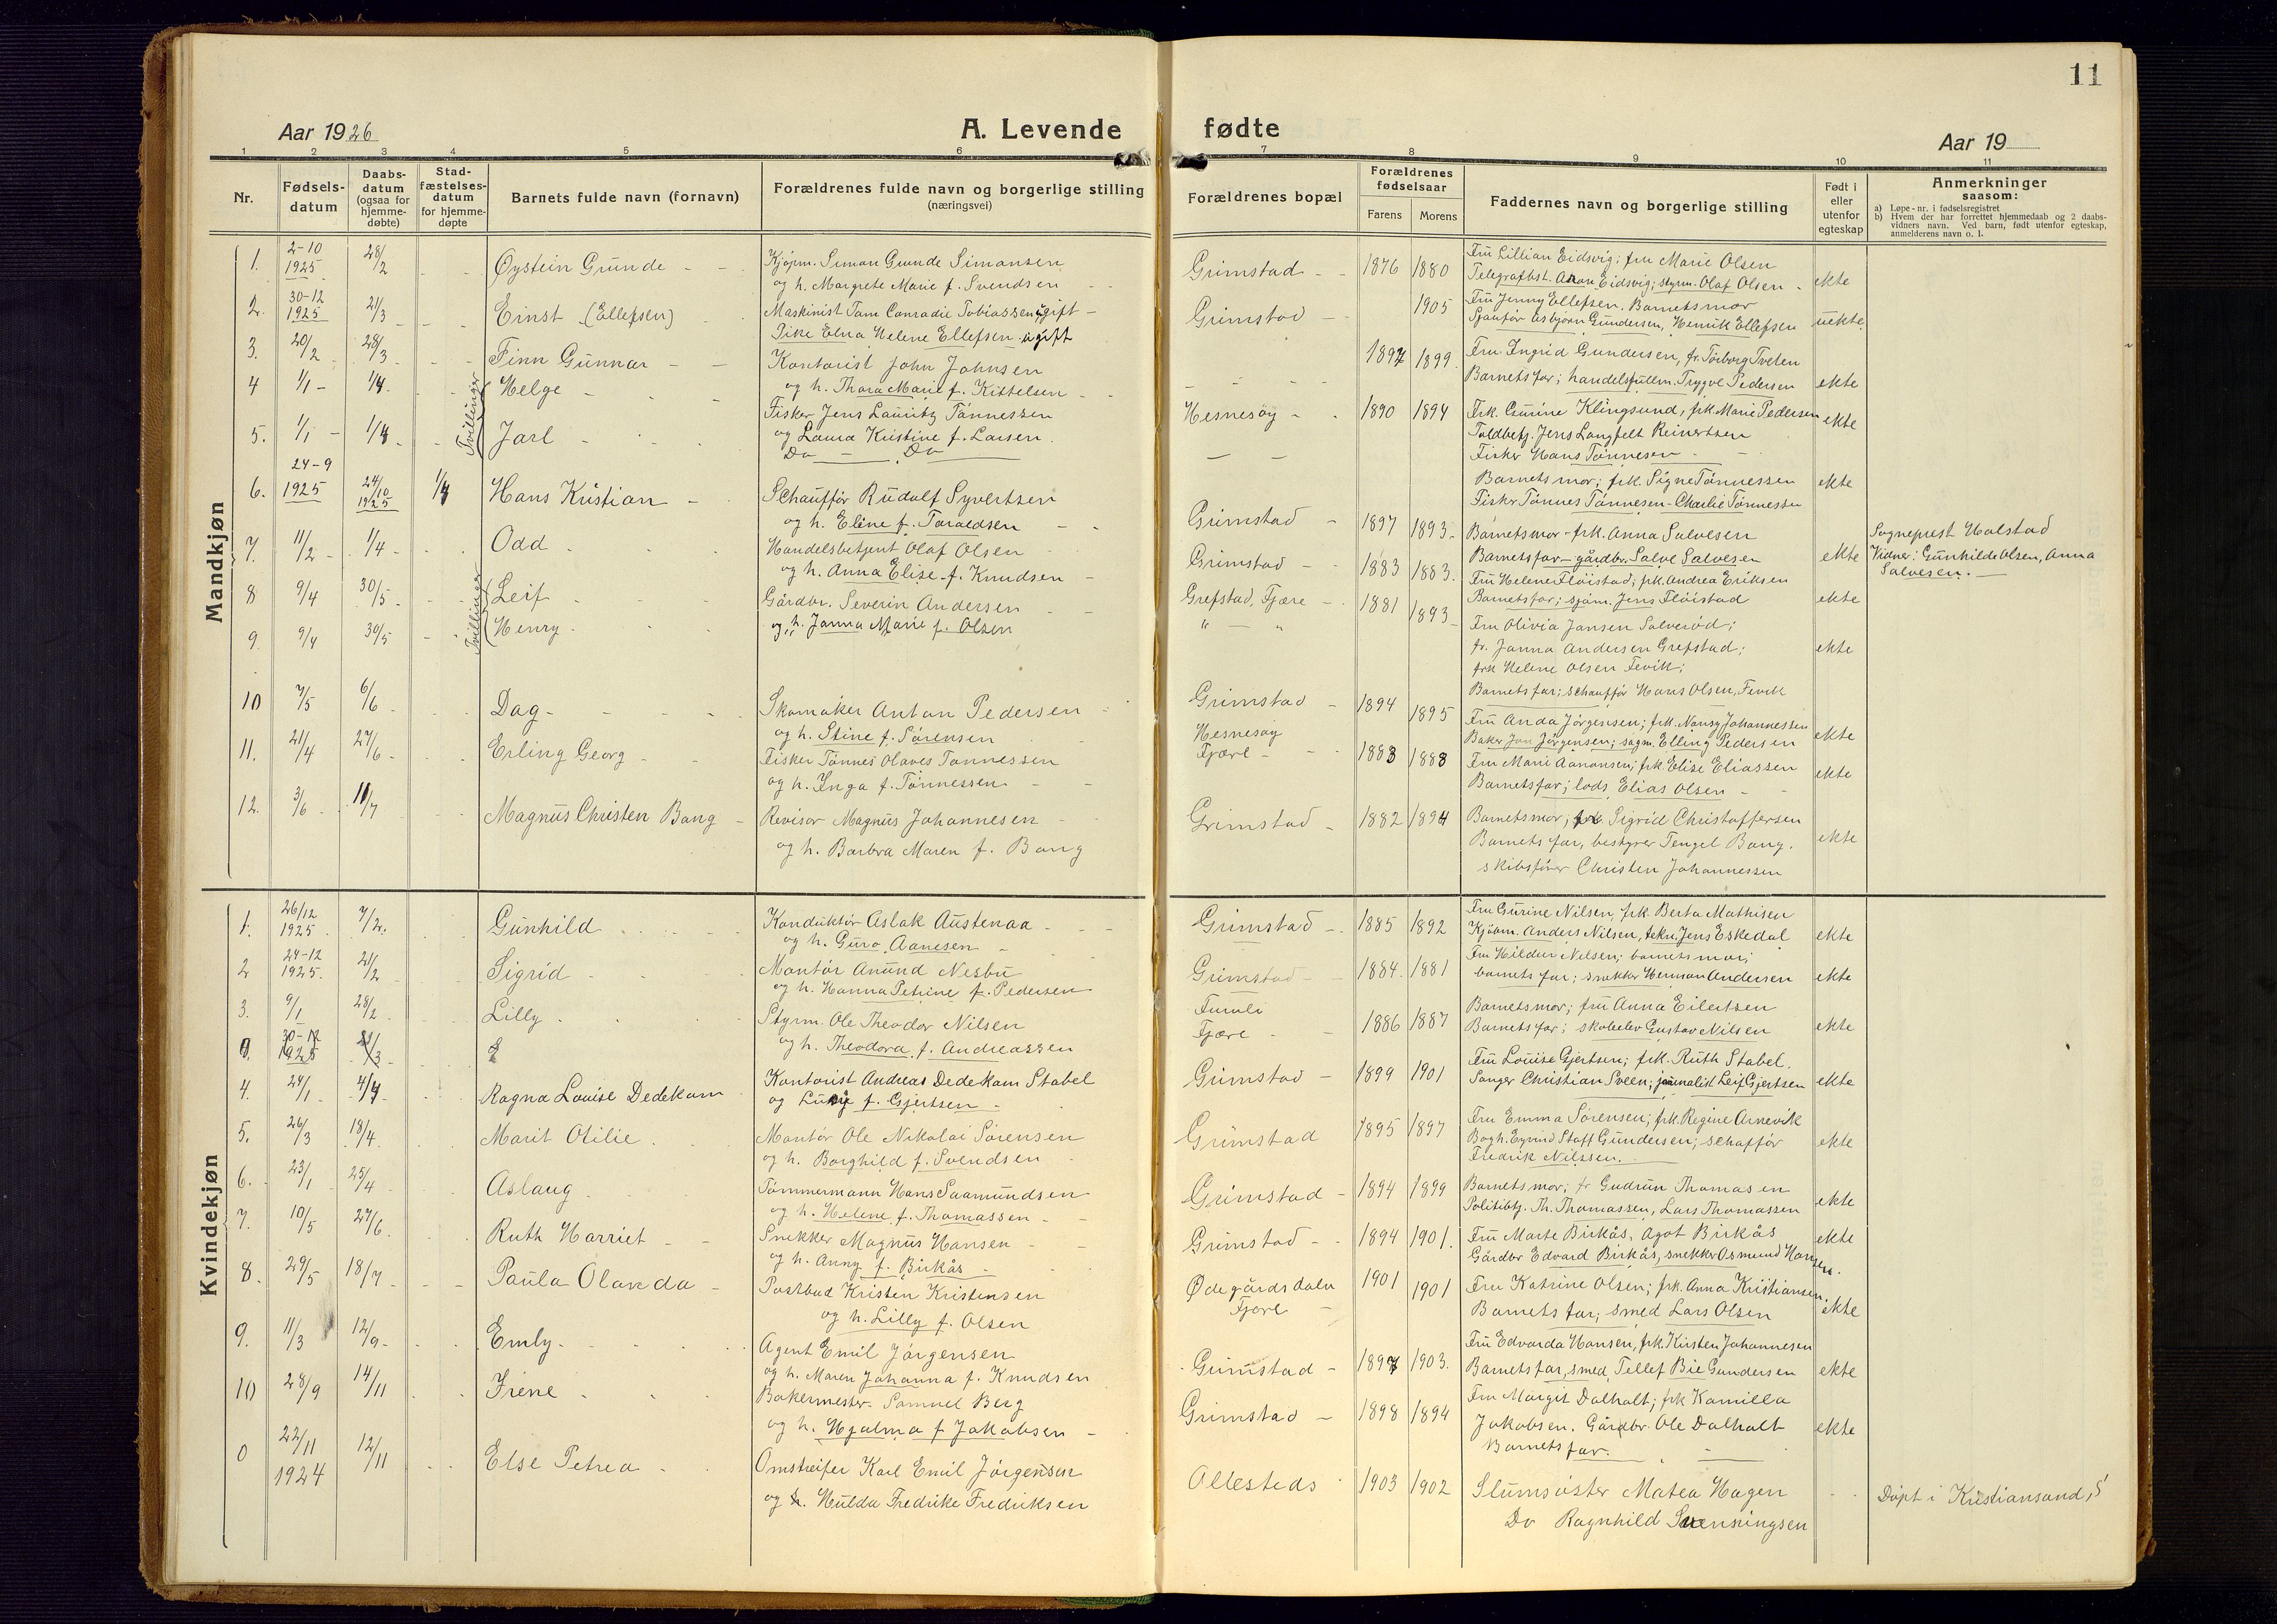 11
Aar 1926
A. Levende
fødte
Aar 19
1 2 3 4 5 6 7 8 9 10 11
Nr.
Fødsels-
datum
Daabs-
datum
(ogsaa for
hjemme-
døbte)
Stad-
fæstelses-
datum
for hjemme-
døpte
Barnets fulde navn (fornavn)
Forældrenes fulde navn og borgerlige stilling
(næringsvei)
Forældrenes bopæl
Forældrenes
fødselsaar
Farens Morens
Faddernes navn og borgerlige stilling
Født i
eller
utenfor
egteskap
Anmerkninger
saasom:
a) Løpe-nr. i fødselsregistret
b) Hvem der har forrettet hjemmedaab og 2 daabs-
vidners navn. Ved barn, født utenfor egteskap,
anmelderens navn o. l.
Mandkjøn
1. 2-10 1925 28/2 Øystein Gunde
Kjøpm. Simon Gunde Simonsen
og h. Margrete Marie f. Svendsen
Grimstad 1876 1880
Fru Lillian Eidsvig; fru Marie Olsen
Telegrafbst. Eidsvig; styrm. Olaf Olsen ekte
2. 30-12 1925 21/3 Einst (Ellefsen)
Maskinist Tom Conradie Tobiassen ugift
Pike Elna Helene Ellefsen ugift
Grimstad 1905
Fru Jenny Ellefsen. Barnets mor
Esbjørn Gundersen, Henrik Ellefsen uekte
3. 20/2 28/3 Finn Gunnar
Kontorist John Johnsen
og h. Thora Marie f. Kittelsen
1897 1899
Fru Ingrid Gundersen, fr. Torborg Tveten
Barnets far; handelsfullm. Trygve Pedersen ekte
4 1/1 1/4 Tvillinger Helge
Fisker Jens Lauritz Tönnessen
og Laura Kristine f. Larsen.
Hesnesøy 1890 1894
Frk. Gurine Klingsund, frk. Marie Pedersen
Toldbetj. Jens Langfelt Reinertsen
Fisker Hans Tönnesen ekte
5. 1/1 1/4 Jarl
Do Do
Barnets mor; frk. Signe Tönnessen
Fisker Tönnes Tönnesen - Charlie Tönnessen ekte
6. 24-9 1925 24/10 1925 1/4 Hans Kristian
Schauffør Rudolf Syvertsen
og h. Eline f. Toraldsen
Grimstad 1897 1893
Barnets mor - frk. Anna Salvesen
Barnets far - gårdbr. Salve Salvesen ekte
Sogneprest Holstad
Vidner: Gunhild Olsen, Anna
Salvesen.
7. 11/2 1/4 Odd
Handelsbetjent Olaf Olsen
og h. Anna Elise f. Knudsen
Grimstad 1883 1883.
Fru Helene Fløistad; frk. Andrea Eriksen
Barnets far; sjøm. Jens Fløistad ekte
8 9/4 30/5 Tvillinger Leif
9 9/4 30/5 Henry
Gårdbr. Severin Andersen
og h. Janna Marie f. Olsen
Grefstad, Fjære 1881 1893
" — "
Fru Olivia Jansen Salveröd;
fr. Janna Andersen Grefstad;
frk Helene Olsen Fevik;
Barnets far; schauffør Hans Olsen, Fevik ekte
10 7/5 6/6 Dag
Skomaker Anton Pedersen
og h. Stine f. Sørensen
Grimstad 1894 1895
Fru Anda Jörgensen; frk. Nansy Johannessen
Baker Jon Jörgensen; sagm. Elling Pedersen ekte
11. 21/4 27/6 Erling Georg
Fisker Tönnes Olaves Tönnessen
og h. Inga f. Tönnessen
Hesnesøy
Fjære 1883 1888
Fru Marie Aanonsen; frk. Elise Eliassen
Barnets far; lods Elias Olsen ekte
12. 3/6 11/7 Magnus Christen Bang
Revisor Magnus Johannesen
og h. Barbra Maren f. Bang
Grimstad 1882 1894
Barnets mor; frk Sigrid Christoffersen
Barnets far, bestyrer Tengel Bang.
skibsfører Christen Johannessen ekte
Kvindekjøn
1. 26/12 1925 7/2 Gunhild
Konduktör Aslak Austenaa
og h. Guro Aanesen
Grimstad 1885 1892
Fru Gurine Nilsen, frk. Berta Mathisen
Kjöbm. Anders Nilsen, tekn. Jens Eskedal ekte
2 24-12 1925. 21/2 Sigrid
Montör Anund Nesbu
og h. Hanna Petrine f. Pedersen
Grimstad 1884 1881
Fru Hildur Nilsen; barnets mor;
barnets far; snekker Herman Andersen ekte
3. 9/1 28/2 Lilly
Styrm. Ole Theodor Nilsen
og h. Theodora f. Andreassen
Furuli
Fjære 1886 1887
Barnets mor; fru Anna Eilertsen
Barnets far; skoleelev Gustav Nilsen ekte
0. 30-12 1925 21/3 E
4. 24/1 4/4 Ragna Louise Dedekam
Kontorist Andreas Dedekam Stabel
og f. Gjertsen
Grimstad 1899 1901
Fru Louise Gjertsen; frk. Ruth Stabel.
Sanger Christian Sveen; journalist Leif Gjertsen ekte
5. 26/3 18/4 Marit Otilie
Montör Ole Nikolai Sörensen
og h. Borghild f. Svendsen
Grimstad 1895 1897
Fru Emma Sörensen; frk. Regine Arnevik
Bogh. Eyvind Staff Gundersen; schaffør
Fredrik Nilssen. ekte
6. 23/1 25/4 Aslaug
Tömmermann Hans Saamundsen
og h. Helene f. Thomassen
Grimstad 1894 1899
Barnets mor; fr Gudrun Thomasen
Politibtj. Th. Thomassen, Lars Thomassen ekte
7. 10/5 27/6 Ruth Harriet
Snekker Magnus Hansen
og h. Anny f. Birkås
Grimstad 1894 1901.
Fru Marte Birkås, Agot Birkås
Gårdbr Edvard Birkås, snekker Osmund Hansen. ekte
8. 29/5 18/7 Paula Olanda
Postbud Kristen Kristensen
og h. Lilly f. Olsen
Ødegårdsdalen
Fjære 1901 1901
Fru Katrine Olsen; frk. Anna Kristiansen.
Barnets far; smed Lars Olsen ekte
9. 11/3 12/9 Emly
Agent Emil Jörgensen
og h. Maren Johanna f. Knudsen
Grimstad 1897 1903.
Fru Edvarda Hansen, frk. Kirsten Johannesen
Barnets far, smed, Tellef Bie Gundersen ekte
10 28/9 14/11 Irene
Bakermester Samuel Berg
og h. Hjalma f Jakobsen
Grimstad 1898 1894
Fru Margit Dalholt; frk Kamilla
Jakobsen. Gårdbr. Ole Dalholt
Barnets far. ekte
0 22/11 1924 12/11 Else Petrea
Omstreifer Karl Emil Jörgensen
og h. Hulda Fredrike Fredriksen
Allesteds 1903 1902
Slumsöster Matea Hagen
Do Ragnhild Svenningsen
Döpt i Kristiansand, S